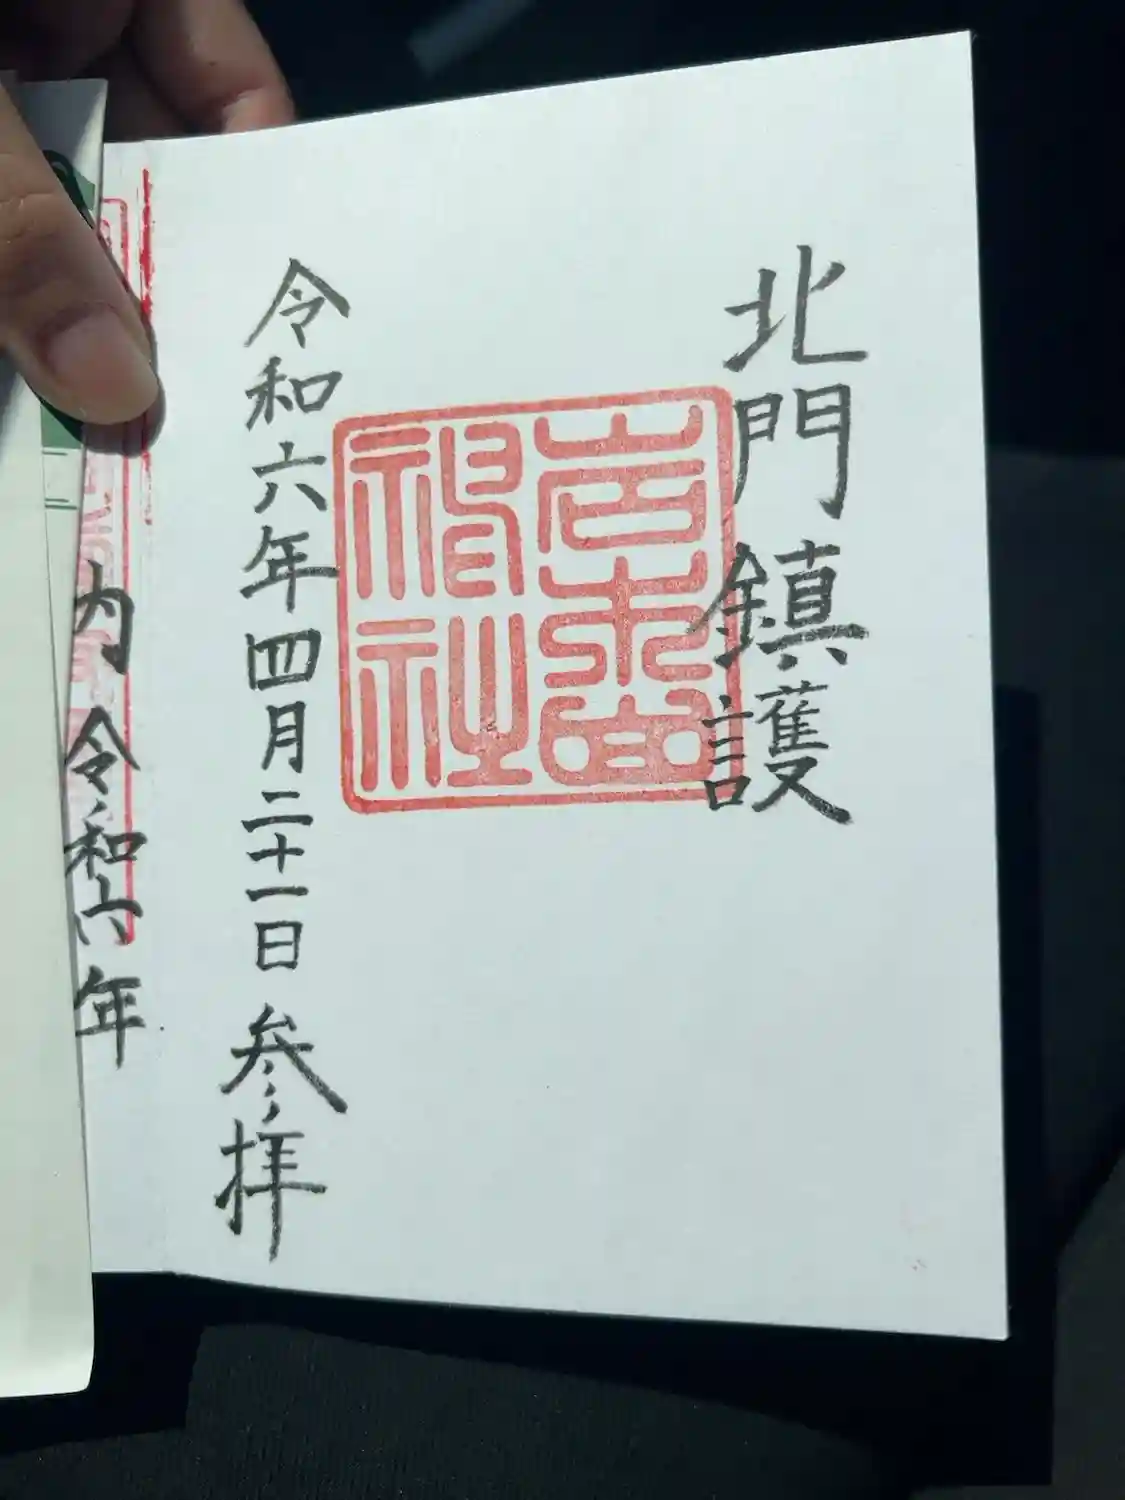 北門鎮護
神社
令和六年四月二十一日 参拝
内 令和六年